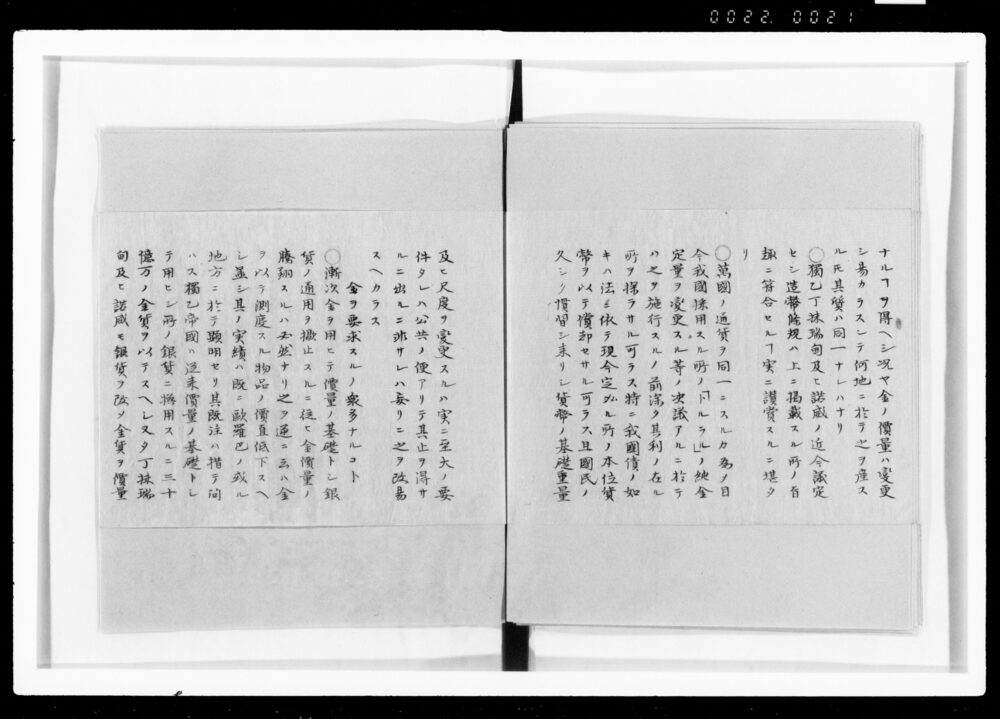 0022. 0021
ナルヿヲ得ヘシ况ヤ金ノ價量ハ變更
シ易カラスシテ何地ニ於テ之ヲ産ス
ル𪜈其質ハ同一ナレハナリ
○獨乙丁抹瑞甸及ヒ諾威ノ近今議定
セシ造幣條規ハ上ニ掲載スル所ノ旨
趣ニ符合セルヿ実ニ讃賞スルニ堪タ
リ
○萬國ノ通貨ヲ同一ニスルカ為メ目
今我國採用スル所ノ「ドルラル」ノ純金
定量ヲ変更スル等ノ决議アルニ於テ
ハ之ヲ施行スルノ前深ク其利ノ在ル
所ヲ探ラサル可ラス特ニ我國債ノ如
キハ法ニ依テ現今定ムル所ノ本位貨
幣ヲ以テ償却セサル可ラス且國民ノ
久シク慣習シ来リシ貨幣ノ基礎重量
及ヒ尺度ヲ変更スルハ実ニ至大ノ要
件タレハ公共ノ便アリテ其止ヲ得サ
ルニ出ルニ非サレハ妄リニ之ヲ改易
スヘカラス
金ヲ要求スルノ衆多ナルコト
○漸次金ヲ用ヒテ價量ノ基礎トシ銀
貨ノ通用ヲ撤止スルニ従ヒ金價量ノ
騰翔スルハ必然ナリ之ヲ通ニ云ハ金
ヲ以テ測度スル物品ノ價直低下スヘ
シ蓋シ其ノ実績ハ既ニ欧羅巴ノ或ル
地方ニ於テ顕明セリ其既往ハ措テ問
ハス獨乙帝國ハ従来價量ノ基礎トシ
テ用ヒシ所ノ銀貨ニ換用スルニ三十
億万ノ金貨ヲ以テスヘレ又タ丁抹瑞
甸及ヒ諾威モ銀貨ヲ改メ金貨ヲ價量